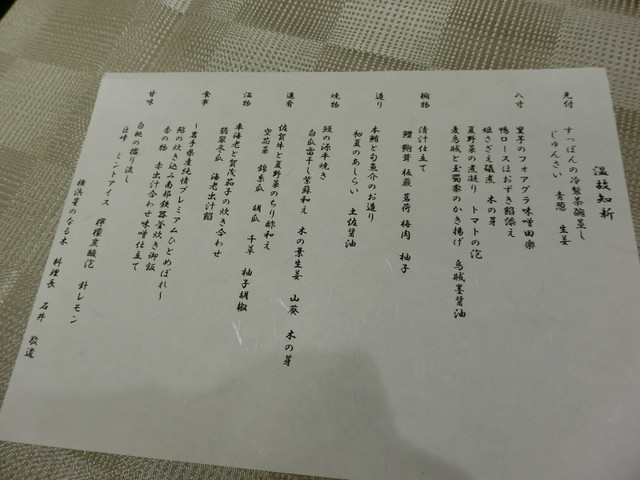 温故知新
先付
すっぽんの冷製茶碗蒸し
じゅんさい 青葱 生姜
八寸
里芋のフォアグラ味噌田楽
鴨ロースほおずき餡添え
姫さざえ磯煮 木の芽
夏野菜の煮凝り トマトの泡
麦烏賊と玉蜀黍のかき揚げ 烏賊墨醤油
椀物
清汁仕立て
鱧 鮑茸 板蕨 茗荷 梅肉 柚子
造り
本鮪と旬魚介のお造り
初夏のあしらい 土佐醤油
焼物
鰻の源平焼き
白瓜雷干し紫蘇和え 木の葉生姜 山葵 木の芽
進肴
佐賀牛と夏野菜のちり酢和え
空芯菜 錦糸瓜 胡瓜 千草 柚子胡椒
温物
車海老と賀茂茄子の炊き合わせ
翡翠冬瓜 海老出汁餡
食事
~岩手県産純情プレミアムひとめぼれ~
鮎の炊き込み南部鉄器釜炊き御飯
香の物 赤出汁合わせ味噌仕立て
甘味
白桃の擂り流し
巨峰 ミントアイス 檸檬炭酸泡 針レモン
横浜星のなる木 料理長 石井 敬遠